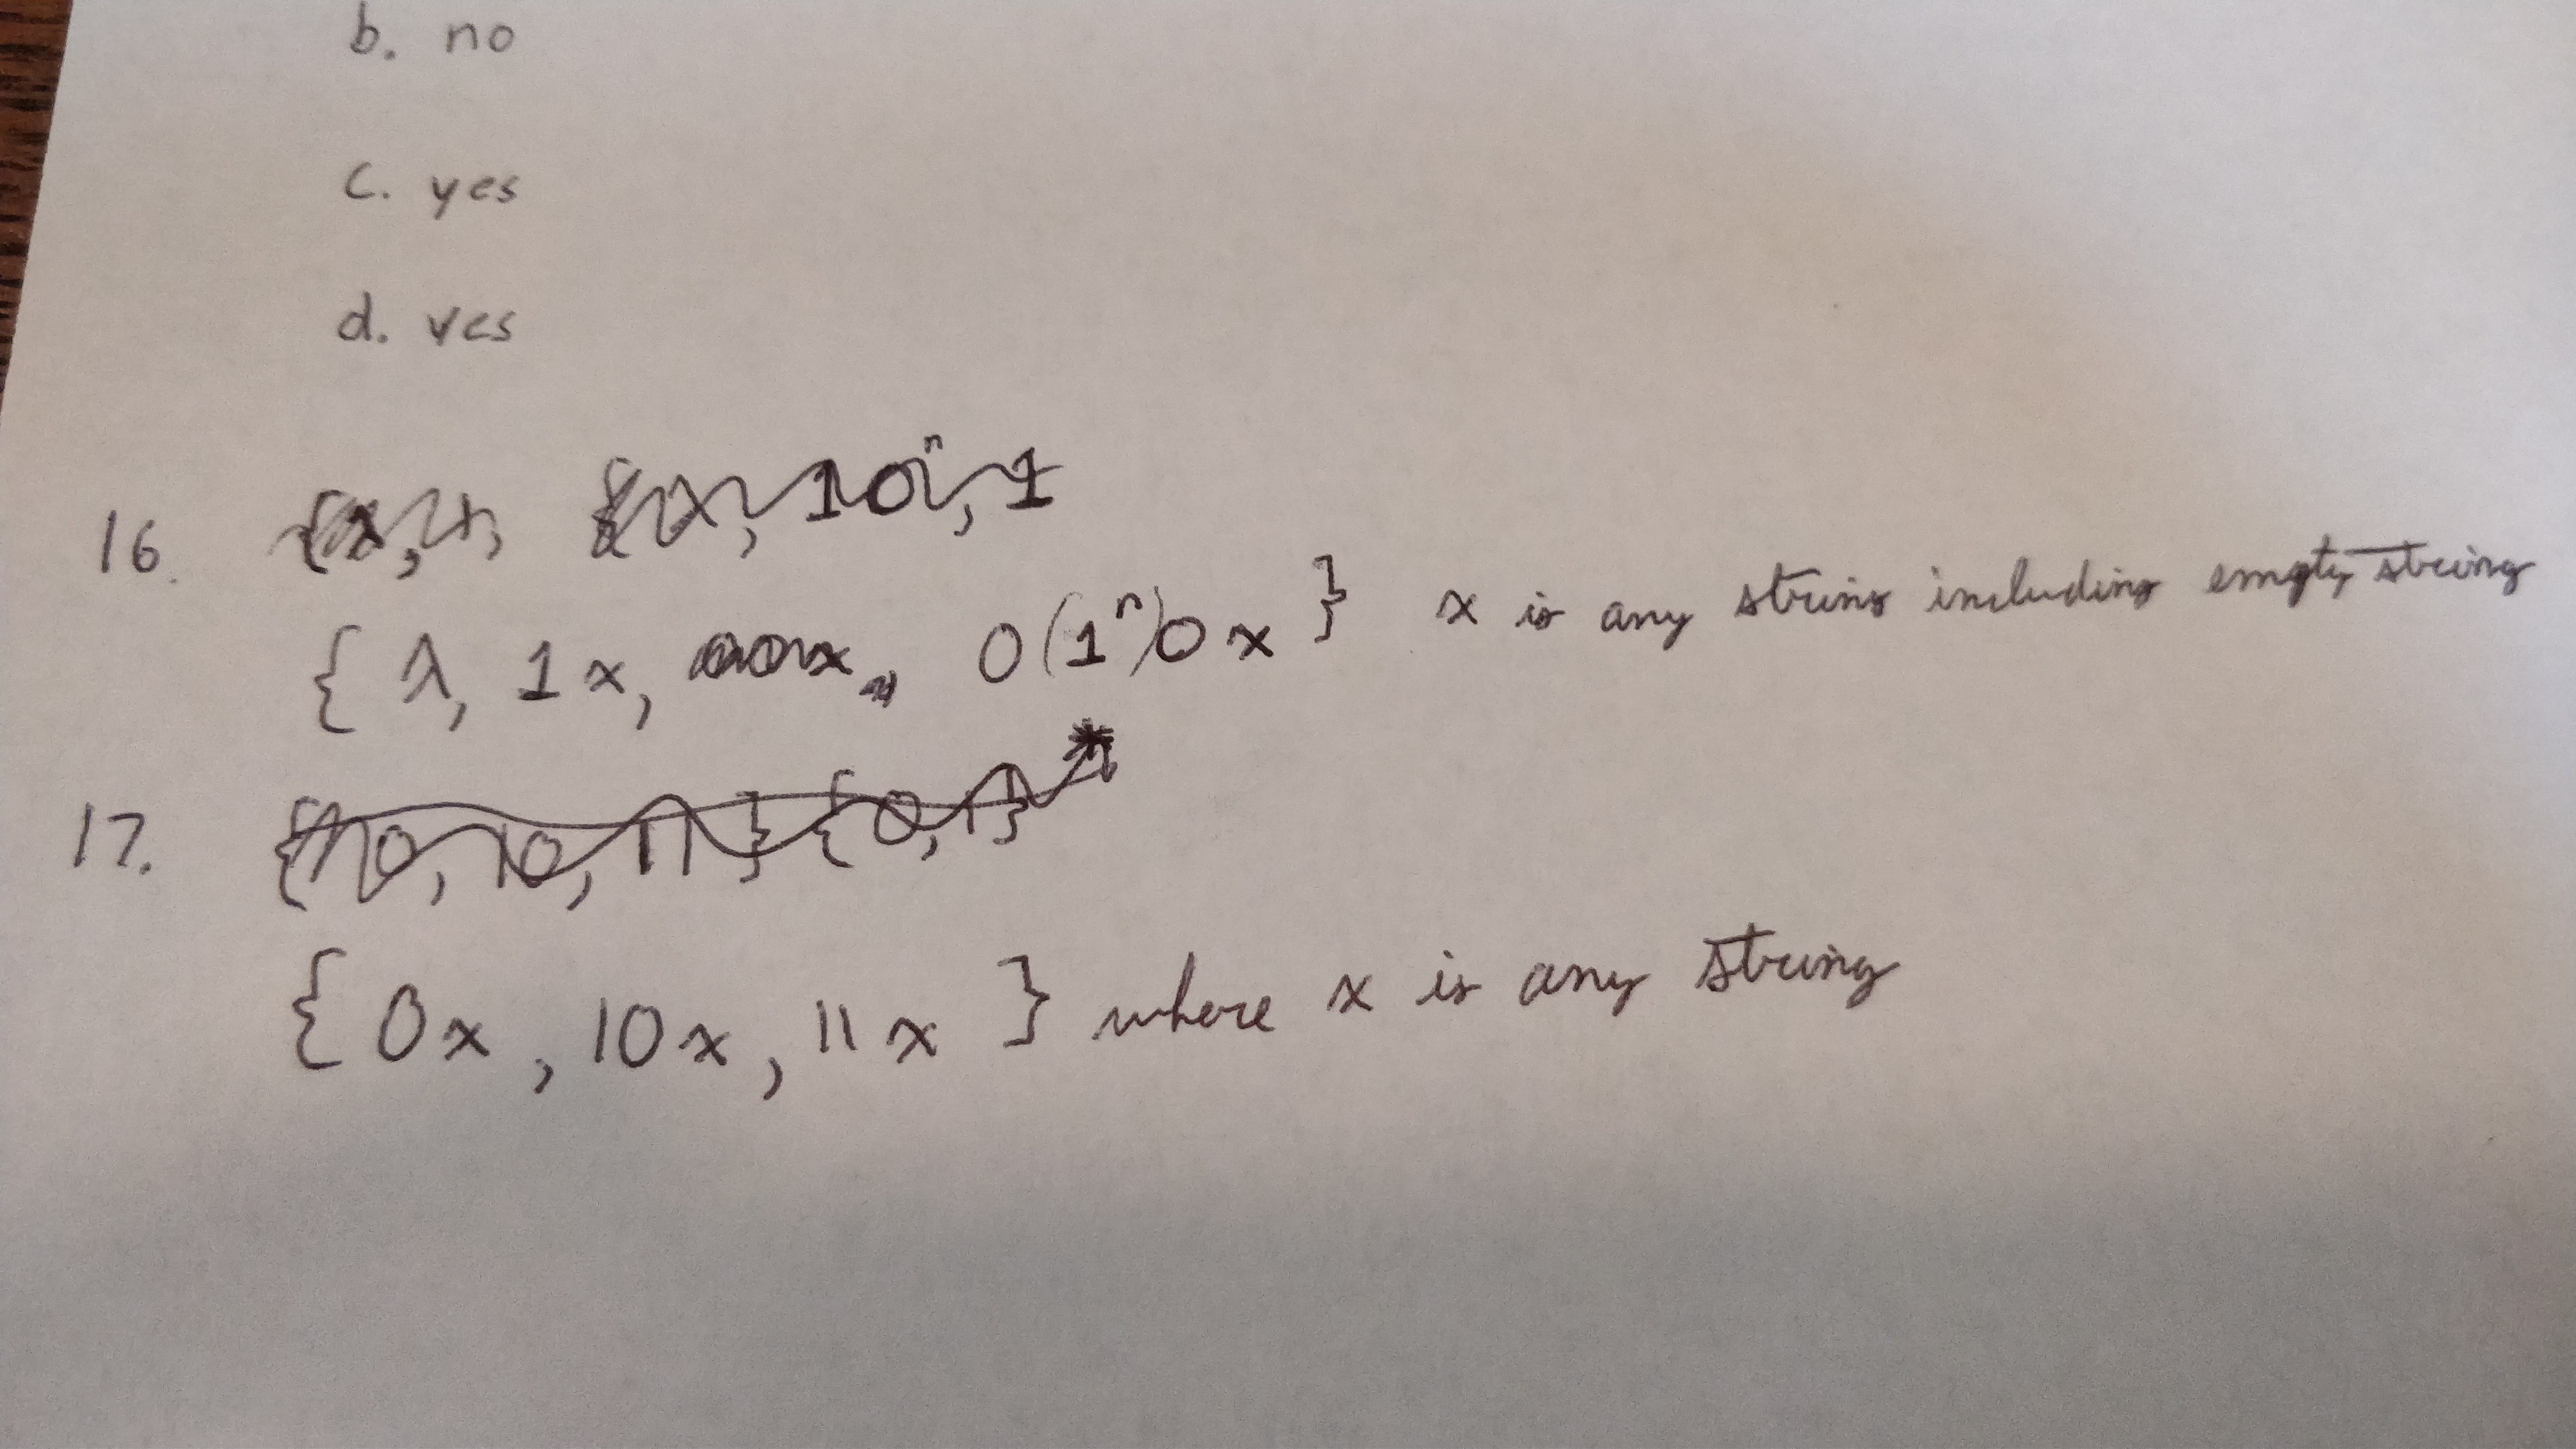 b. no
c. yes
d. yes
16. {λ, 10ⁿ, 1
{ λ, 1x, 0(1ⁿ)0x } x is any string including empty string
17. {0, 10, 11} {0, 1}*
{ 0x, 10x, 11x } where x is any string